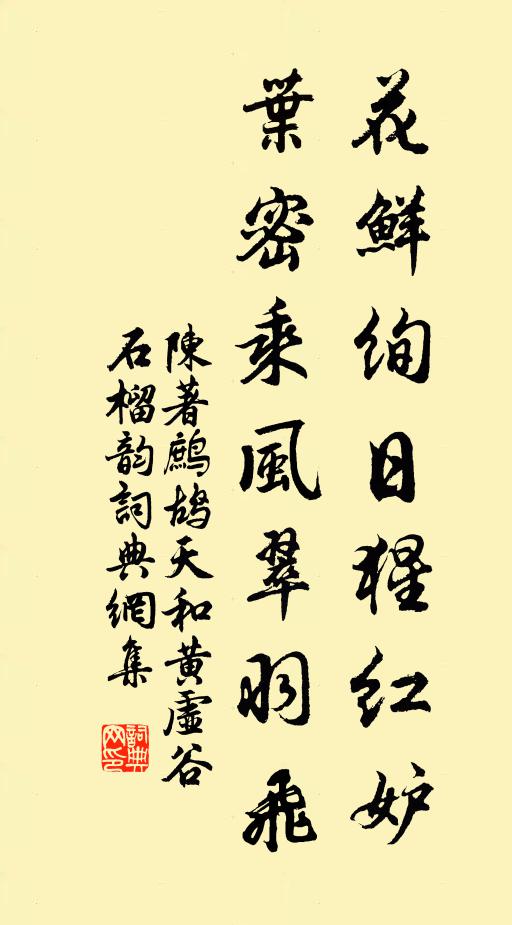 花鮮絢日猩紅妒
葉密乘風翠羽飛
陳著鷓鴣天和黃虛谷
石榴韵詞典網集
詞典网印